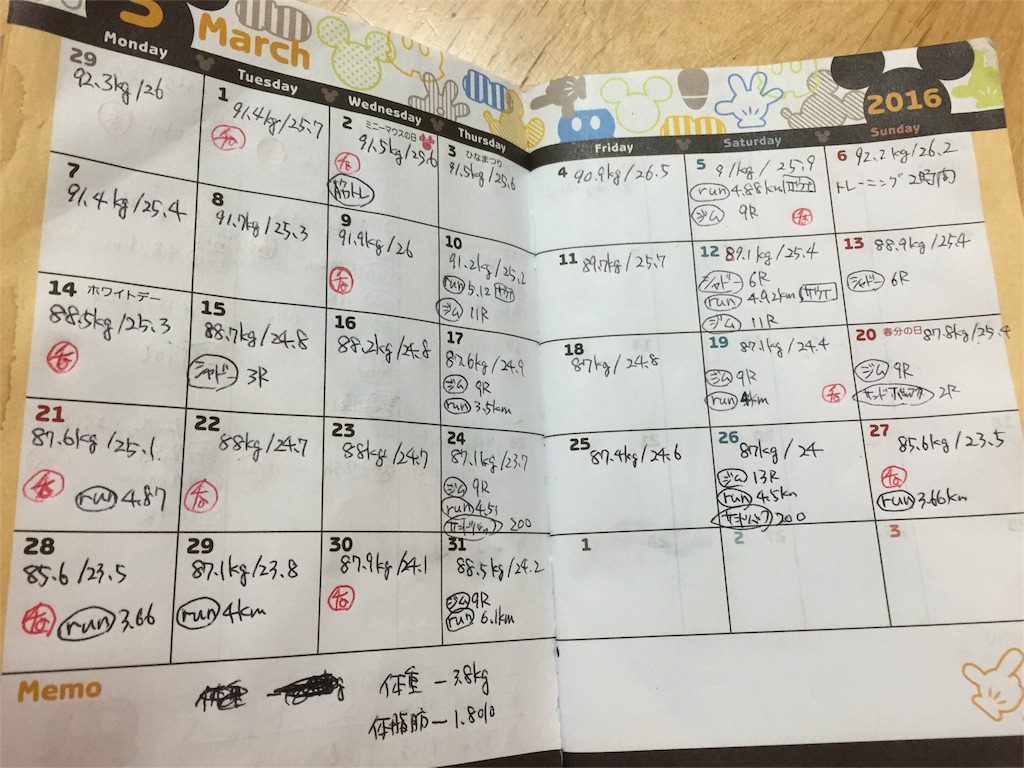 3
March
2016
Monday
Tuesday
Wednesday
Thursday
Friday
Saturday
Sunday
29
92.3kg/26
1
91.4kg/25.7
2
ミニーマウスの日
91.5kg/25.6
筋トレ
3 ひなまつり
91.5kg/25.6
4 90.9kg/26.5
5
91kg/25.9
run 4.88km
ジム 9R
6 92.2kg/26.2
トレーニング2時間
7
91.4kg/25.4
8
91.7kg/25.3
9
91.9kg/26
10
91.2kg/25.2
run 5.12
ジム 11R
11 89.7kg/25.7
12 89.1kg/25.4
シャドー 6R
run 4.92km
ジム 11R
13 88.9kg/25.4
シャドー 6R
14 ホワイトデー
88.5kg/25.3
15
88.7kg/24.8
シャドー 3R
16
88.2kg/24.8
17
87.6kg/24.9
ジム 9R
run 3.5km
18
87kg/24.8
19
87.1kg/24.4
ジム 9R
run 4km
20 春分の日 87.8kg/25.4
ジム 9R
2R
21
87.6kg/25.1
run 4.87
22
88kg/24.7
23
88kg/24.7
24
87.1kg/23.7
ジム 9R
run 4.51
200
25
87.4kg/24.6
26
87kg/24
ジム 13R
run 4.5km
200
27
85.6kg/23.5
run 3.66km
28
85.6/23.5
run 3.66
29
87.1kg/23.8
run 4km
30
87.9kg/24.1
31
88.5kg/24.2
ジム 9R
run 6.1km
1
2
3
Memo
体重 -3.8kg
体脂肪 -1.8%